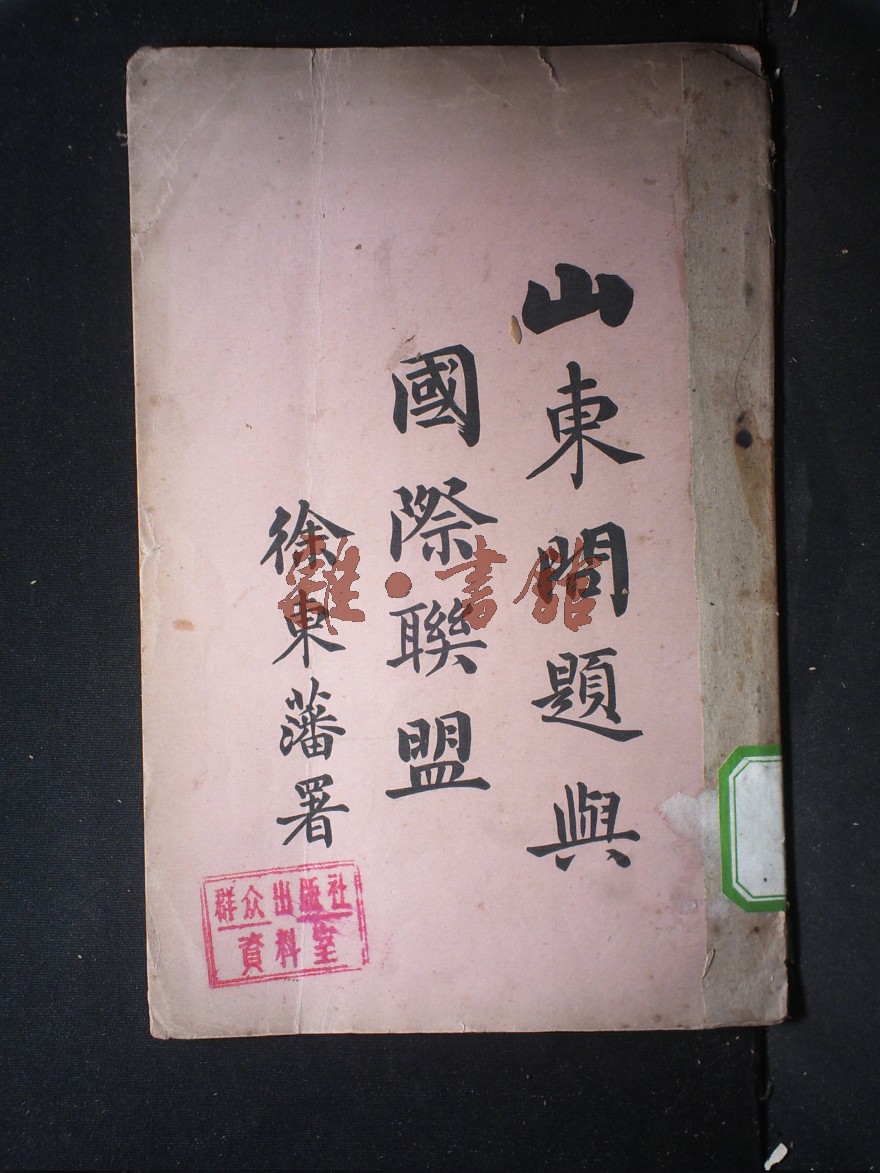 山東問題與
國際聯盟
徐東藩署
雜·書館
群众出版社
資料室